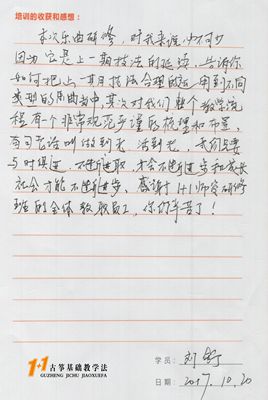 培训的收获和感想：
本次乐曲研修，对我来说必不可少
因为它是上一期技法的延续，告诉你
如何把上一期技法合理的运用到不同
类型的乐曲当中，其次对我们整个教学流
程有一个非常规范严谨的梳理和布置，
有句老话叫做到老 活到老，我们只要
与时俱进，不断进取，才会不断进步和成长
社会才能不断进步，感谢1+1师资研修
班的全体教职员工，你们辛苦了！
1+1 古筝基础教学法
GUZHENG JICHU JIAOXUEFA
学员：刘
日期：2017.10.20